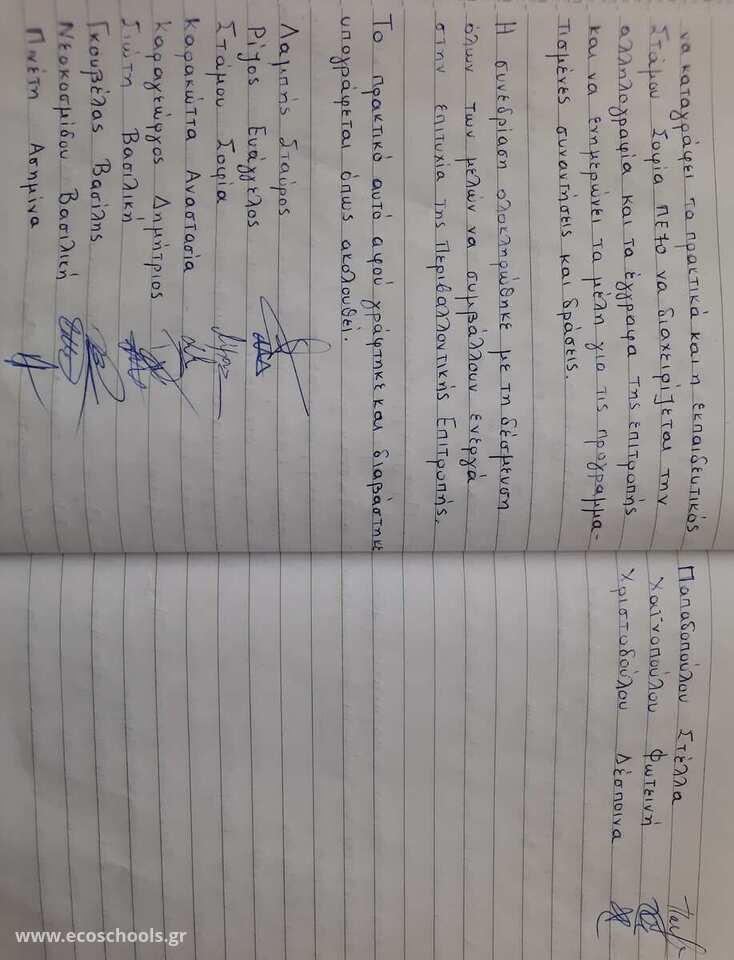 να καταγράφει τα πρακτικά και η εκπαιδευτικός
Στάμου Σοφία ΠΕ70 να διαχειρίζεται την
αλληλογραφία και τα έγγραφα της επιτροπής
και να ενημερώνει τα μέλη για τις προγραμμα-
τισμένες συναντήσεις και δράσεις.
Η συνεδρίαση ολοκληρώθηκε με τη δέσμευση
όλων των μελών να συμβάλλουν ενεργά
στην επιτυχία της Περιβαλλοντικής Επιτροπής.
Το πρακτικό αυτό αφού γράφτηκε και διαβάστηκε
υπογράφεται όπως ακολουθεί.
Λαμπής Σταύρος
Ρίζος Ευάγγελος
Στάμου Σοφία
Καρακώττα Αναστασία
Καραγεώργος Δημήτριος
Σιώτη Βασιλική
Γκουβέλας Βασίλης
Νεοκοσμίδου Βασιλική
Πινέτη Ασημίνα
Παπαδοπούλου Στέλλα
Χαϊνοπούλου Φωτεινή
Χριστοδούλου Δέσποινα
www.ecoschools.gr